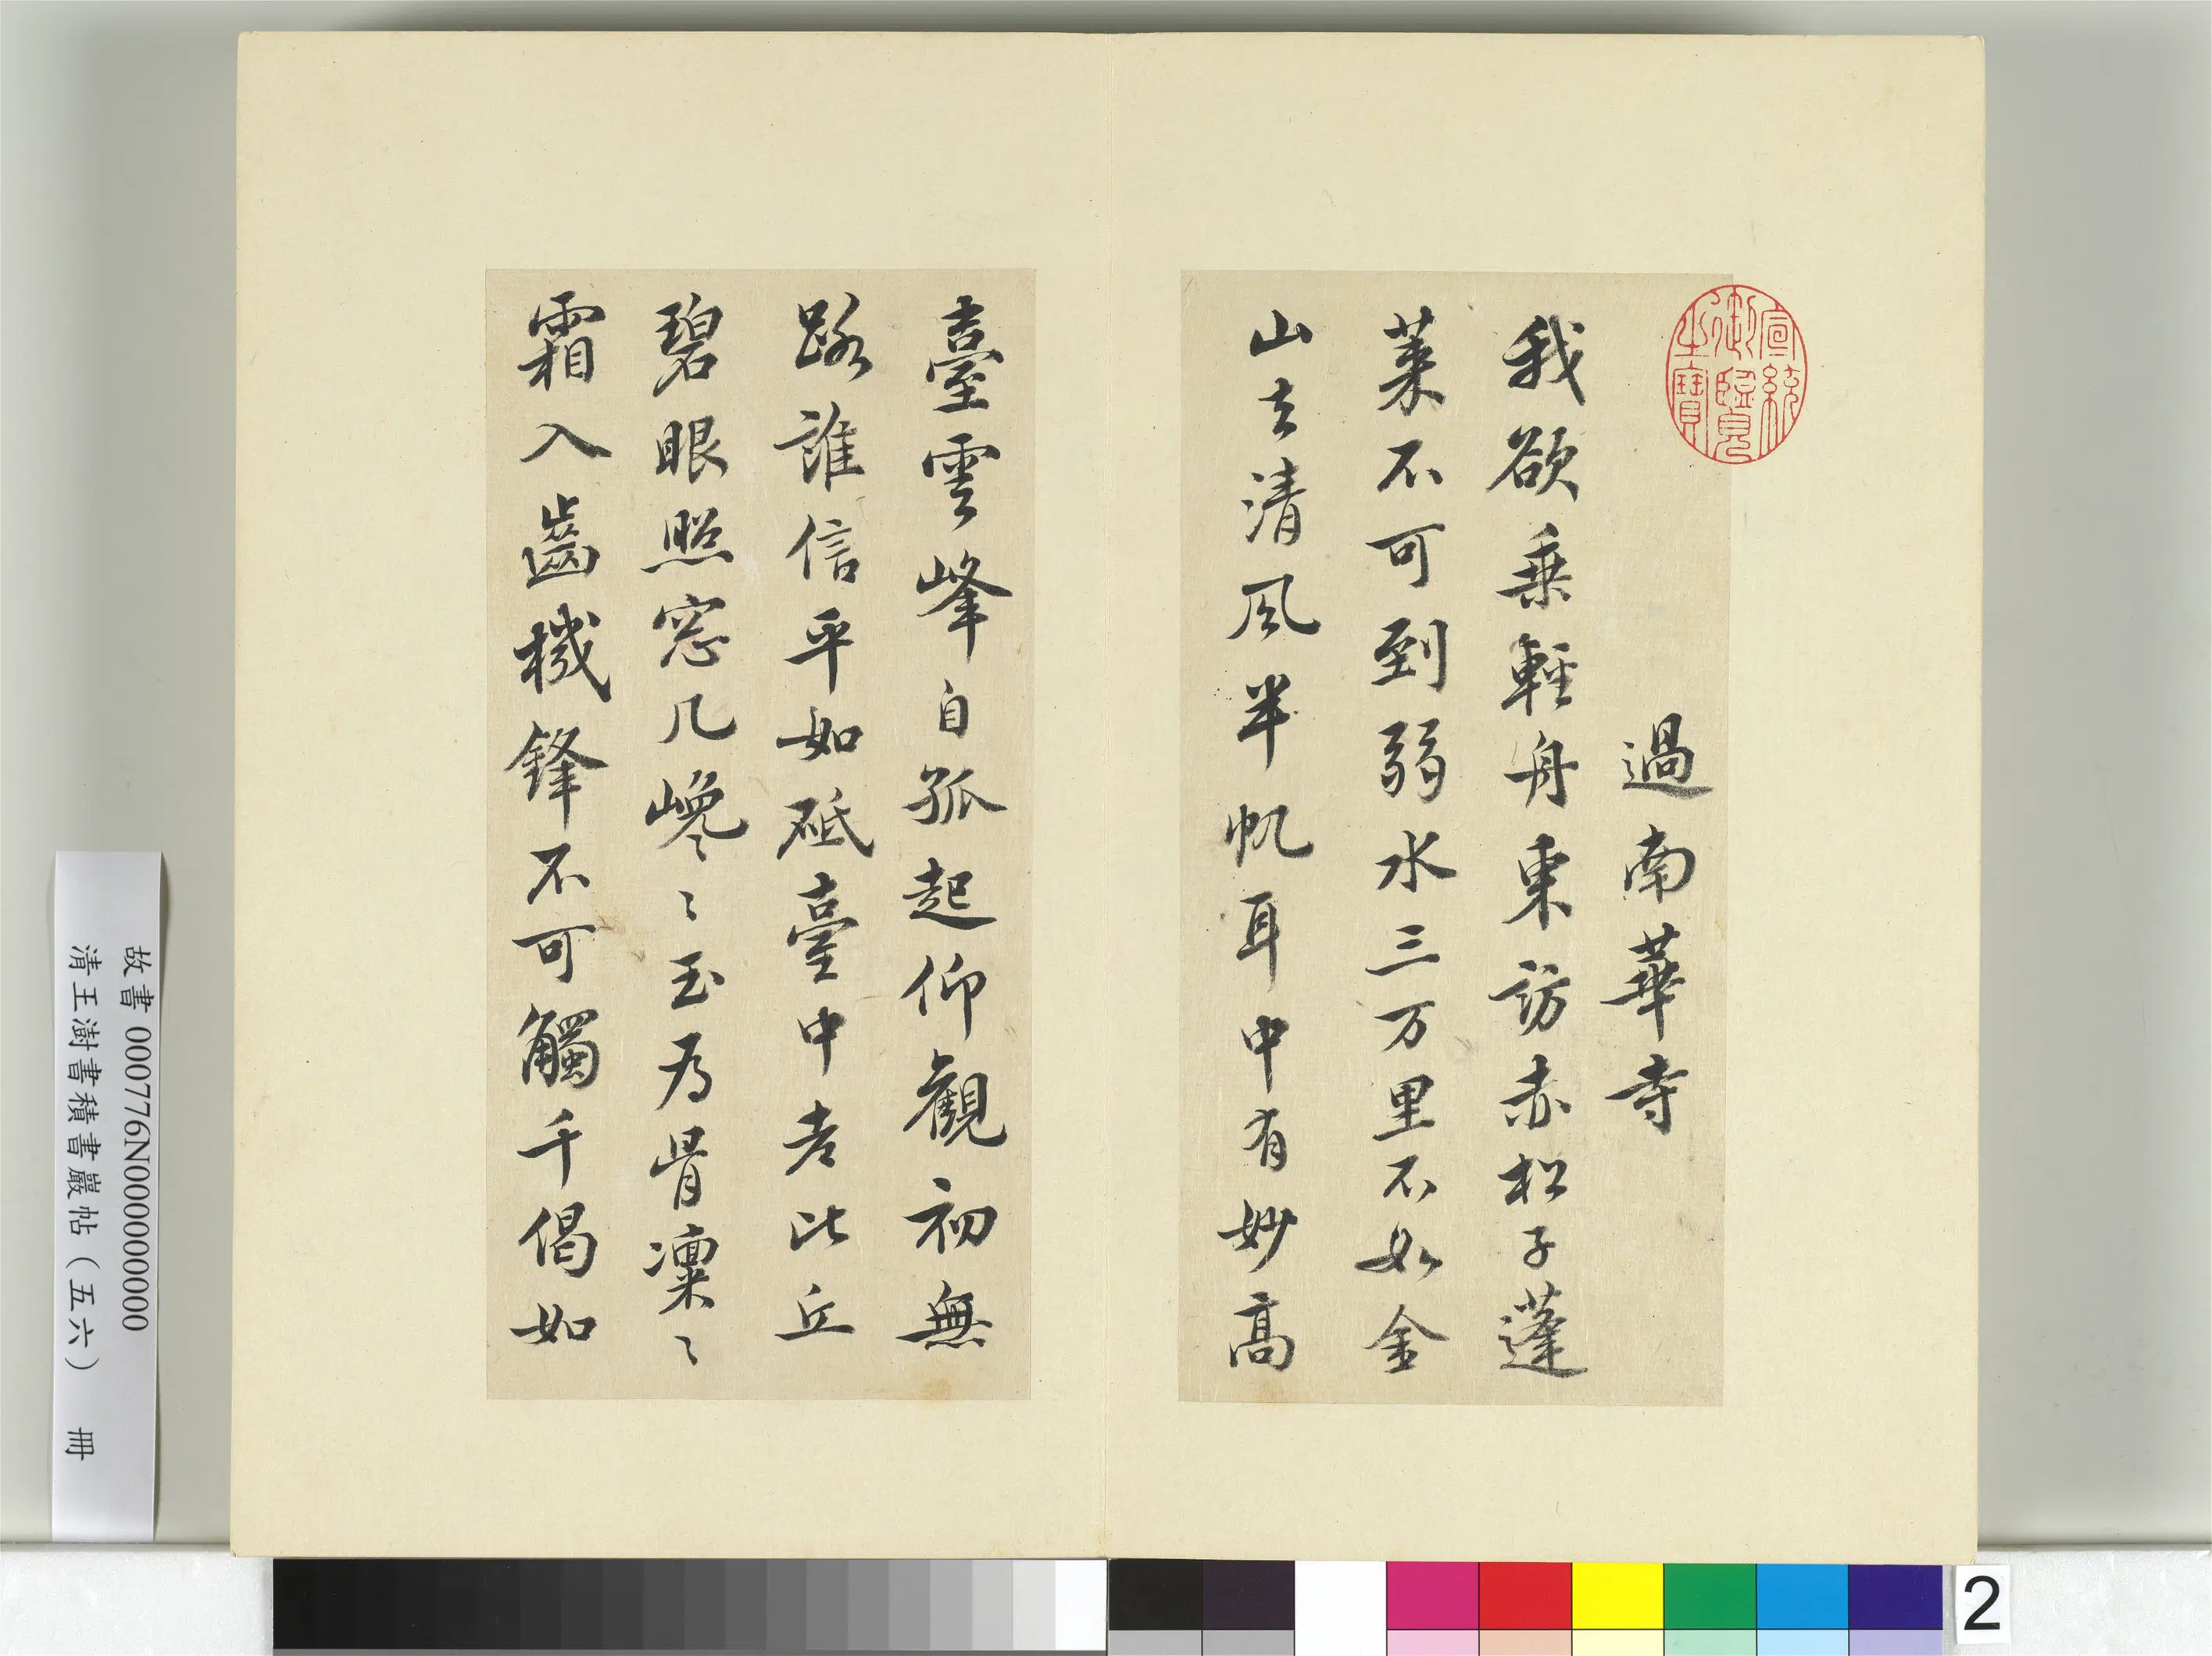 過南華寺
我欲乗輕舟東訪赤松子蓬
莱不可到弱水三万里不如金
山去清風半帆耳中有妙高
臺雲峰自孤起仰觀初無
路誰信平如砥臺中老比丘
碧眼照窓几巉〻玉為骨凜〻
霜入齒機鋒不可觸千偈如
宣統
御覽
之寶
故書 000776N000000000
清王澍書積書巖帖（五六） 冊
2